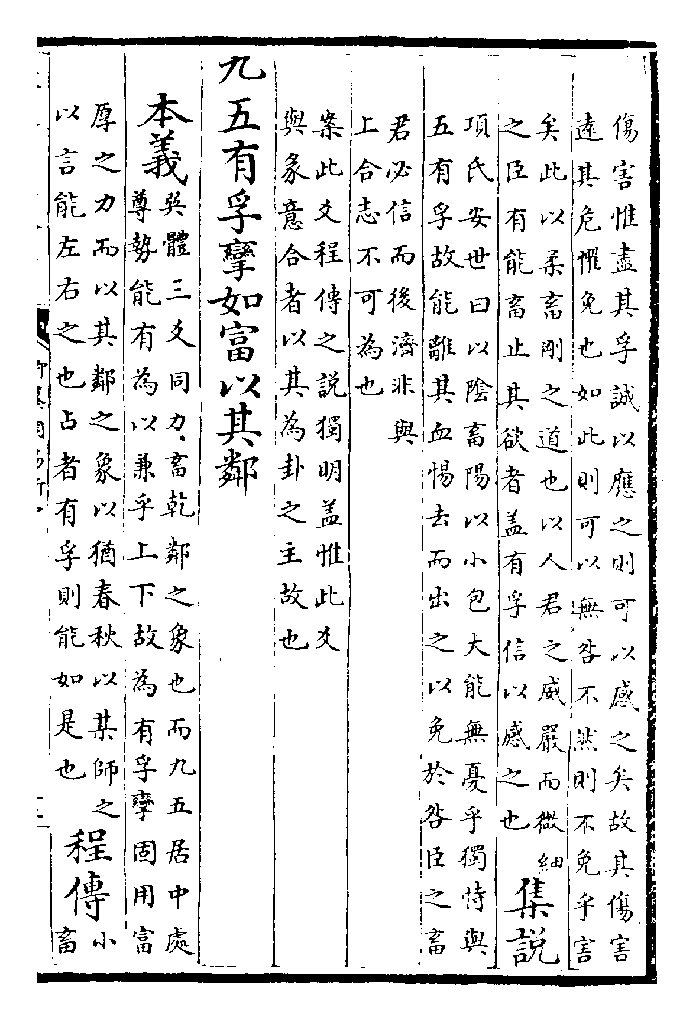 傷害惟盡其孚誠以應之則可以感之矣故其傷害
遠其危懼免也如此則可以無咎不然則不免乎害
矣此以柔畜剛之道也以人君之威嚴而微細
之臣有能畜止其欲者盖有孚信以感之也
集說
項氏安世曰以陰畜陽以小包大能無憂乎獨恃與
五有孚故能離其血惕去而出之以免於咎臣之畜
君必信而後濟非與
上合志不可為也
案此爻程傳之說獨明盖惟此爻
與彖意合者以其為卦之主故也
九五有孚攣如富以其鄰
本義
巽體三爻同力畜乾鄰之象也而九五居中處
尊勢能有為以兼乎上下故為有孚攣固用富
厚之力而以其鄰之象以猶春秋以某師之
以言能左右之也占者有孚則能如是也
程傳
小
畜